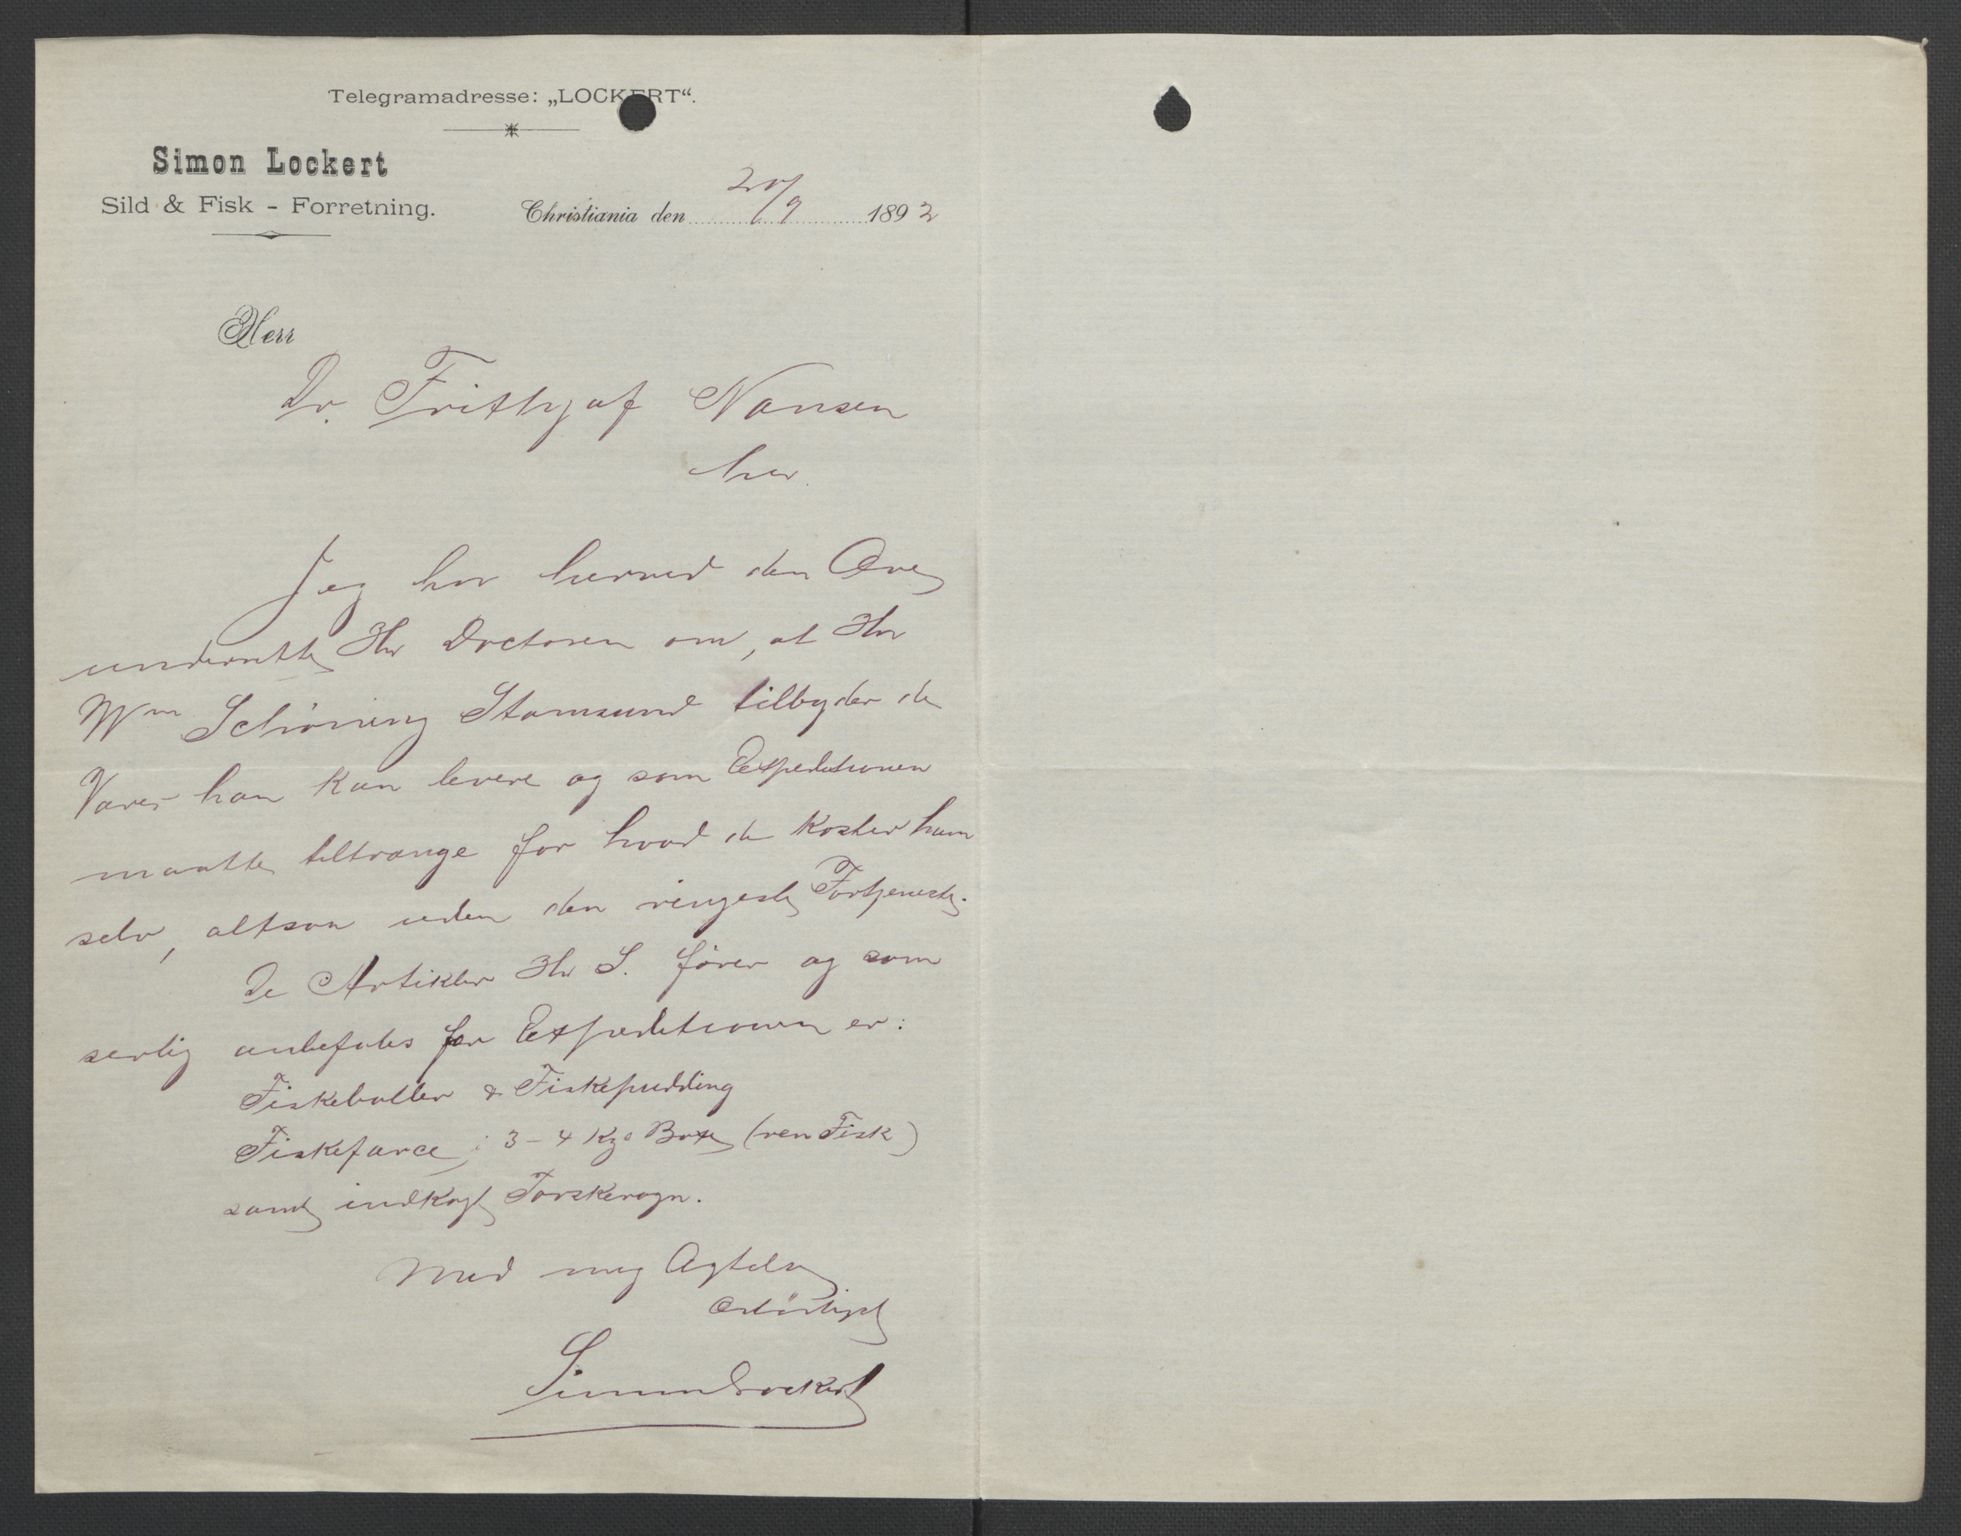 Telegramadresse: „LOCKERT“.
Simon Lockert
Sild & Fisk - Forretning.
Christiania den 20/9 1892
Herr
Dr. Frithjof Nansen
her.
Jeg har herved den Ære
underrette Hr Doctoren om, at Hr
Wm Schöning Stamsund tilbyder de
Varer han kan levere og som Expeditionen
maatte tiltrænge for hvad de koster ham
selv, altsaa uden den ringeste Fortjeneste.
De Artikler Hr S. fører og som
særlig anbefales for Expeditionen er:
Fiskeboller & Fiskepudding
Fiskefarce i 3-4 Kgo Boxe (ren Fisk)
samt indkogt Torskerogn.
Med megen Agtelse
Simon Lockert